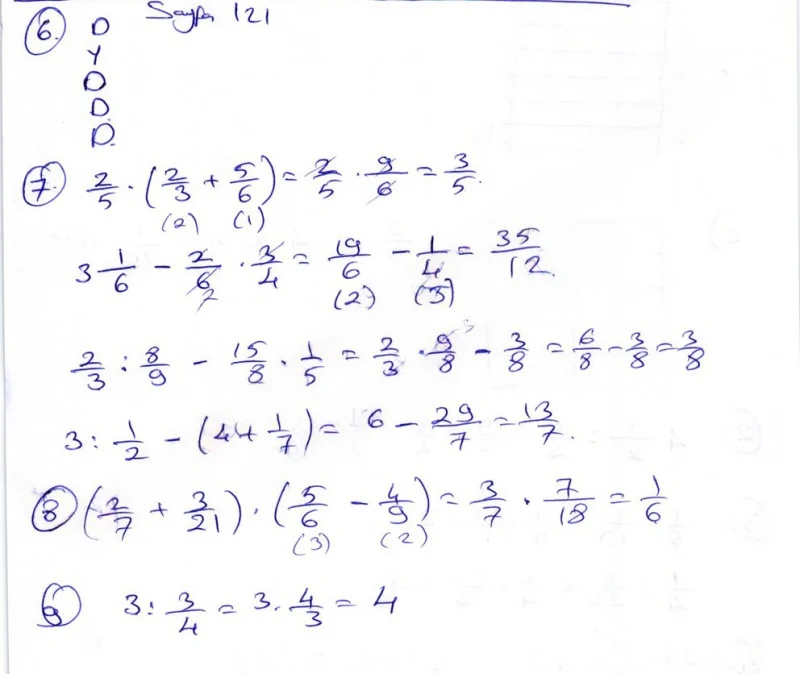 Sayfa 121
6. D
Y
D
D.
D.
7. 2/5 · (2/3 + 5/6) = 2/5 · 9/6 = 3/5.
(2) (1)
3 1/6 - 2/6 · 3/4 = 19/6 - 1/4 = 35/12.
2 (2) (3)
2/3 : 8/9 - 15/8 · 1/5 = 2/3 · 9/8 3 - 3/8 = 6/8 - 3/8 = 3/8
3 : 1/2 - (4 + 1/7) = 6 - 29/7 = 13/7.
8 (2/7 + 3/21) · (5/6 - 4/9) = 3/7 · 7/18 = 1/6
(3) (2)
9 3 : 3/4 = 3 · 4/3 = 4